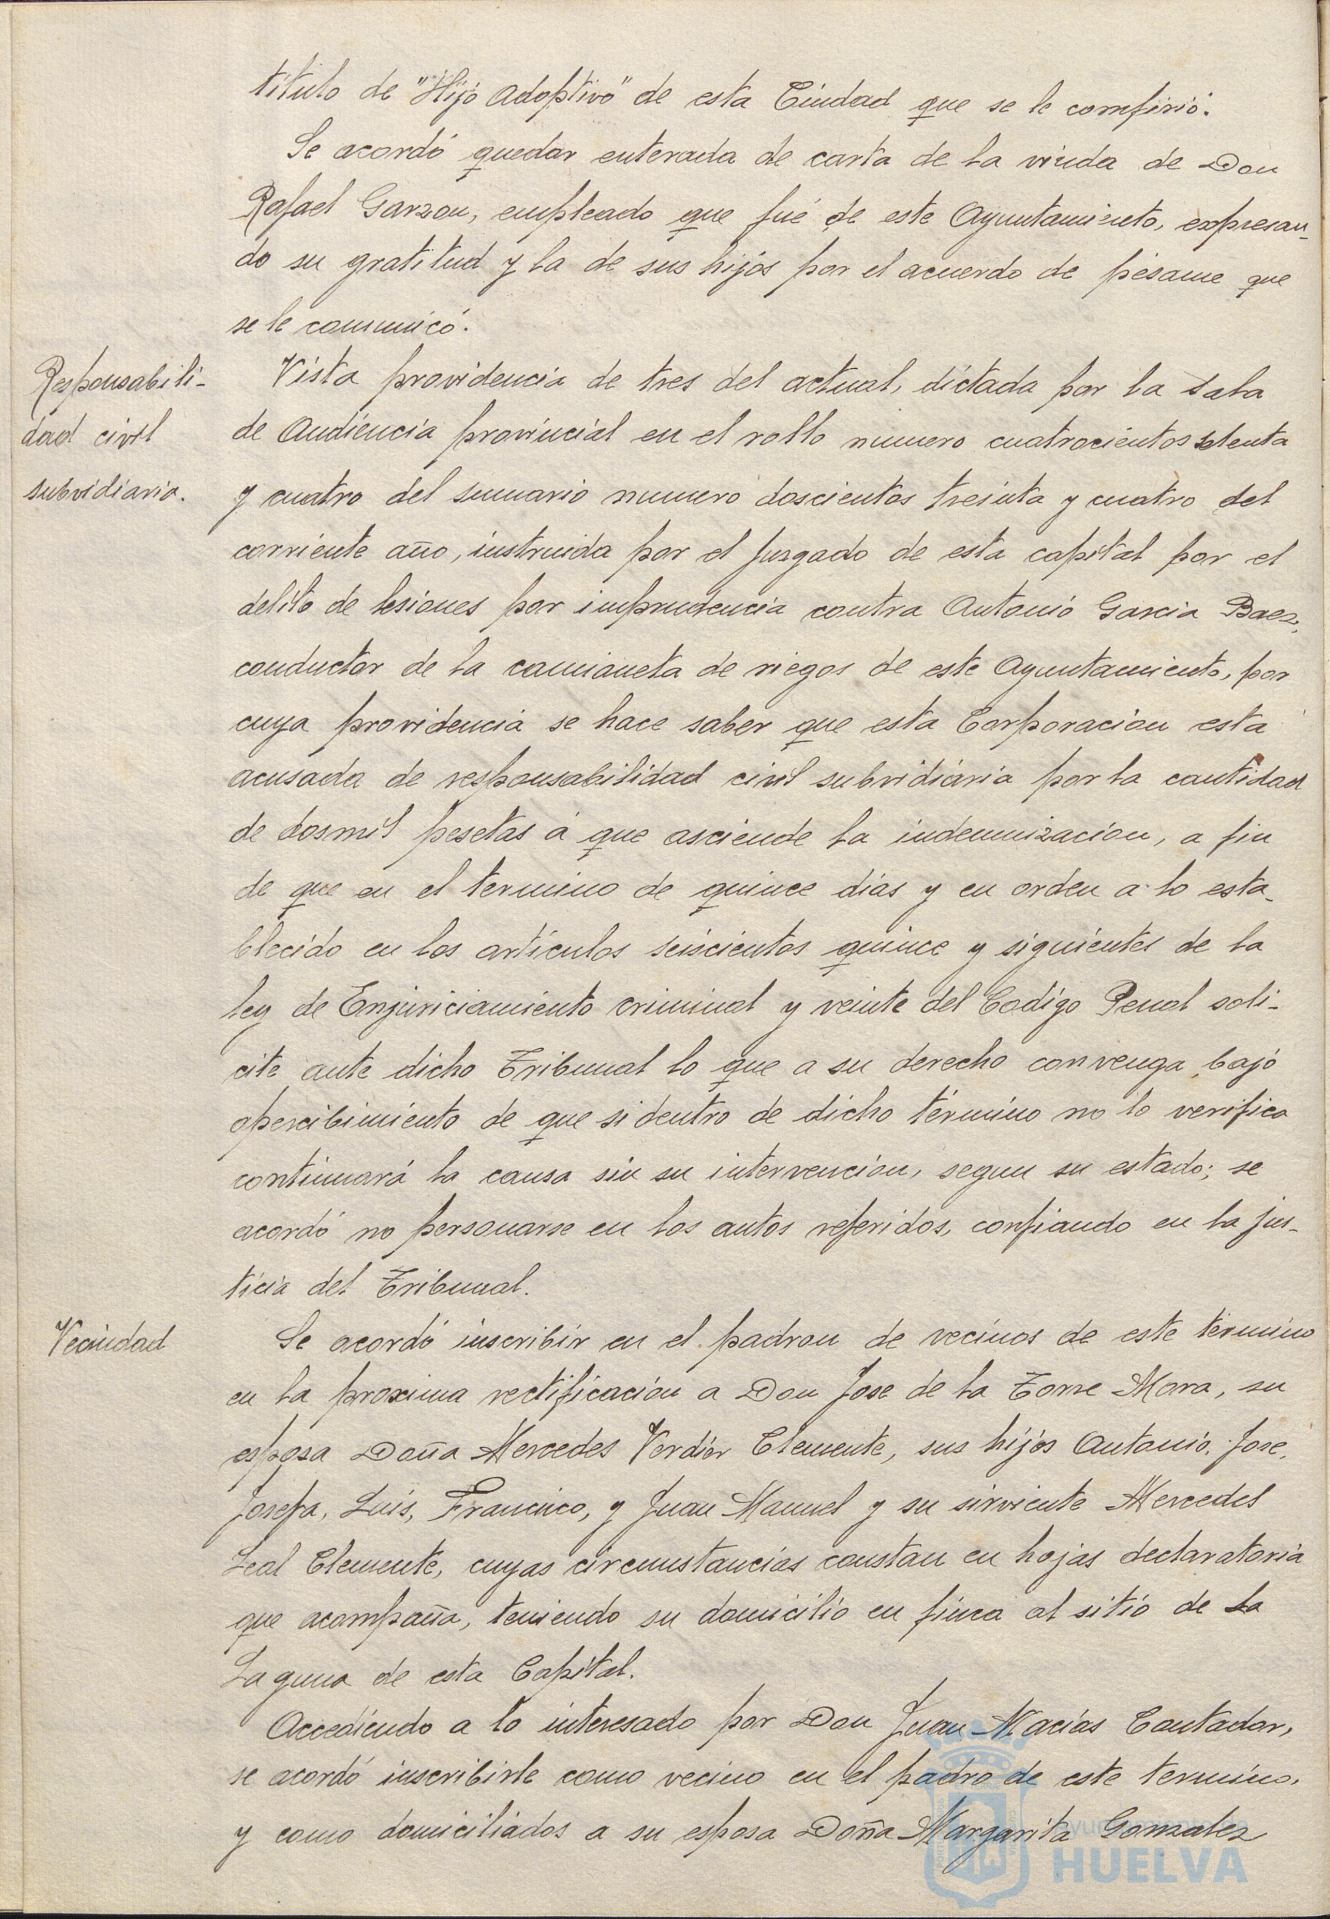 título de "Hijo Adoptivo" de esta Ciudad que se le comfirió.
Se acordó quedar enterada de carta de la viuda de Don
Rafael Garzon, empleado que fué de este Ayuntamiento, expresan-
do su gratitud y la de sus hijos por el acuerdo de pésame que
se le comunicó.
Responsabili-
dad civil
subvidiaria.
Vista providencia de tres del actual, dictada por la Sala
de Audiencia provincial en el rollo numero cuatrocientos setenta
y cuatro del sumario numero doscientos treinta y cuatro del
corriente año, instruida por el Juzgado de esta capital por el
delito de lesiones por imprudencia contra Antonio Garcia Baez,
conductor de la camioneta de riegos de este Ayuntamiento, por
cuya providencia se hace saber que esta Corporacion está
acusada de responsabilidad civil subvidiaria por la cantidad
de dosmil pesetas á que asciende la indemnizacion, a fin
de que en el termino de quince dias y en orden a lo esta-
blecido en los artículos seiscientos quince y siguientes de la
ley de Enjuriciamiento criminal y veinte del Codigo Penal soli-
cite ante dicho Tribunal lo que a su derecho convenga bajo
apercibimiento de que si dentro de dicho término no lo verifica
continuará la causa sin su intervencion, segun su estado; se
acordó no personarse en los autos referidos, confiando en la jus-
ticia del Tribunal.
Vecindad
Se acordó inscribir en el padron de vecinos de este termino
en la proxima rectificacion a Don Jose de la Torre Mora, su
esposa Doña Mercedes Verdier Clemente, sus hijos Antonio, Jose,
Josefa, Luis, Francisco, y Juan Manuel y su sirviente Mercedes
Leal Clemente, cuyas circunstancias constan en hojas declaratoria
que acompaña, teniendo su domicilio en finca al sitio de La
Laguna de esta Capital.
Accediendo a lo interesado por Don Juan Macías Contador,
se acordó inscribirle como vecino en el padro de este termino,
y como domiciliados a su esposa Doña Margarita Gonzalez
HUELVA